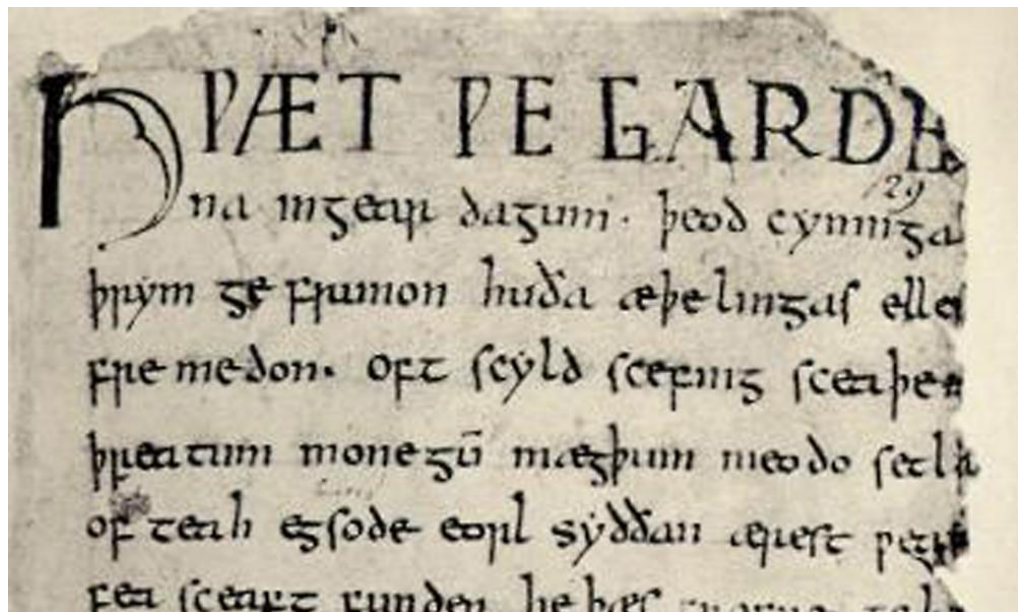 HǷÆT ǷE GARDE
na ingear dagum· þeod cyninga
þrym ge frunon huða æþelingas elle
fre medon. oft scyld scefing sceaþe
þreatum monegū mægþum meodo setla
of teah egsode eorl syððan ærest ƿear
fea sceaft funden he þæs
129